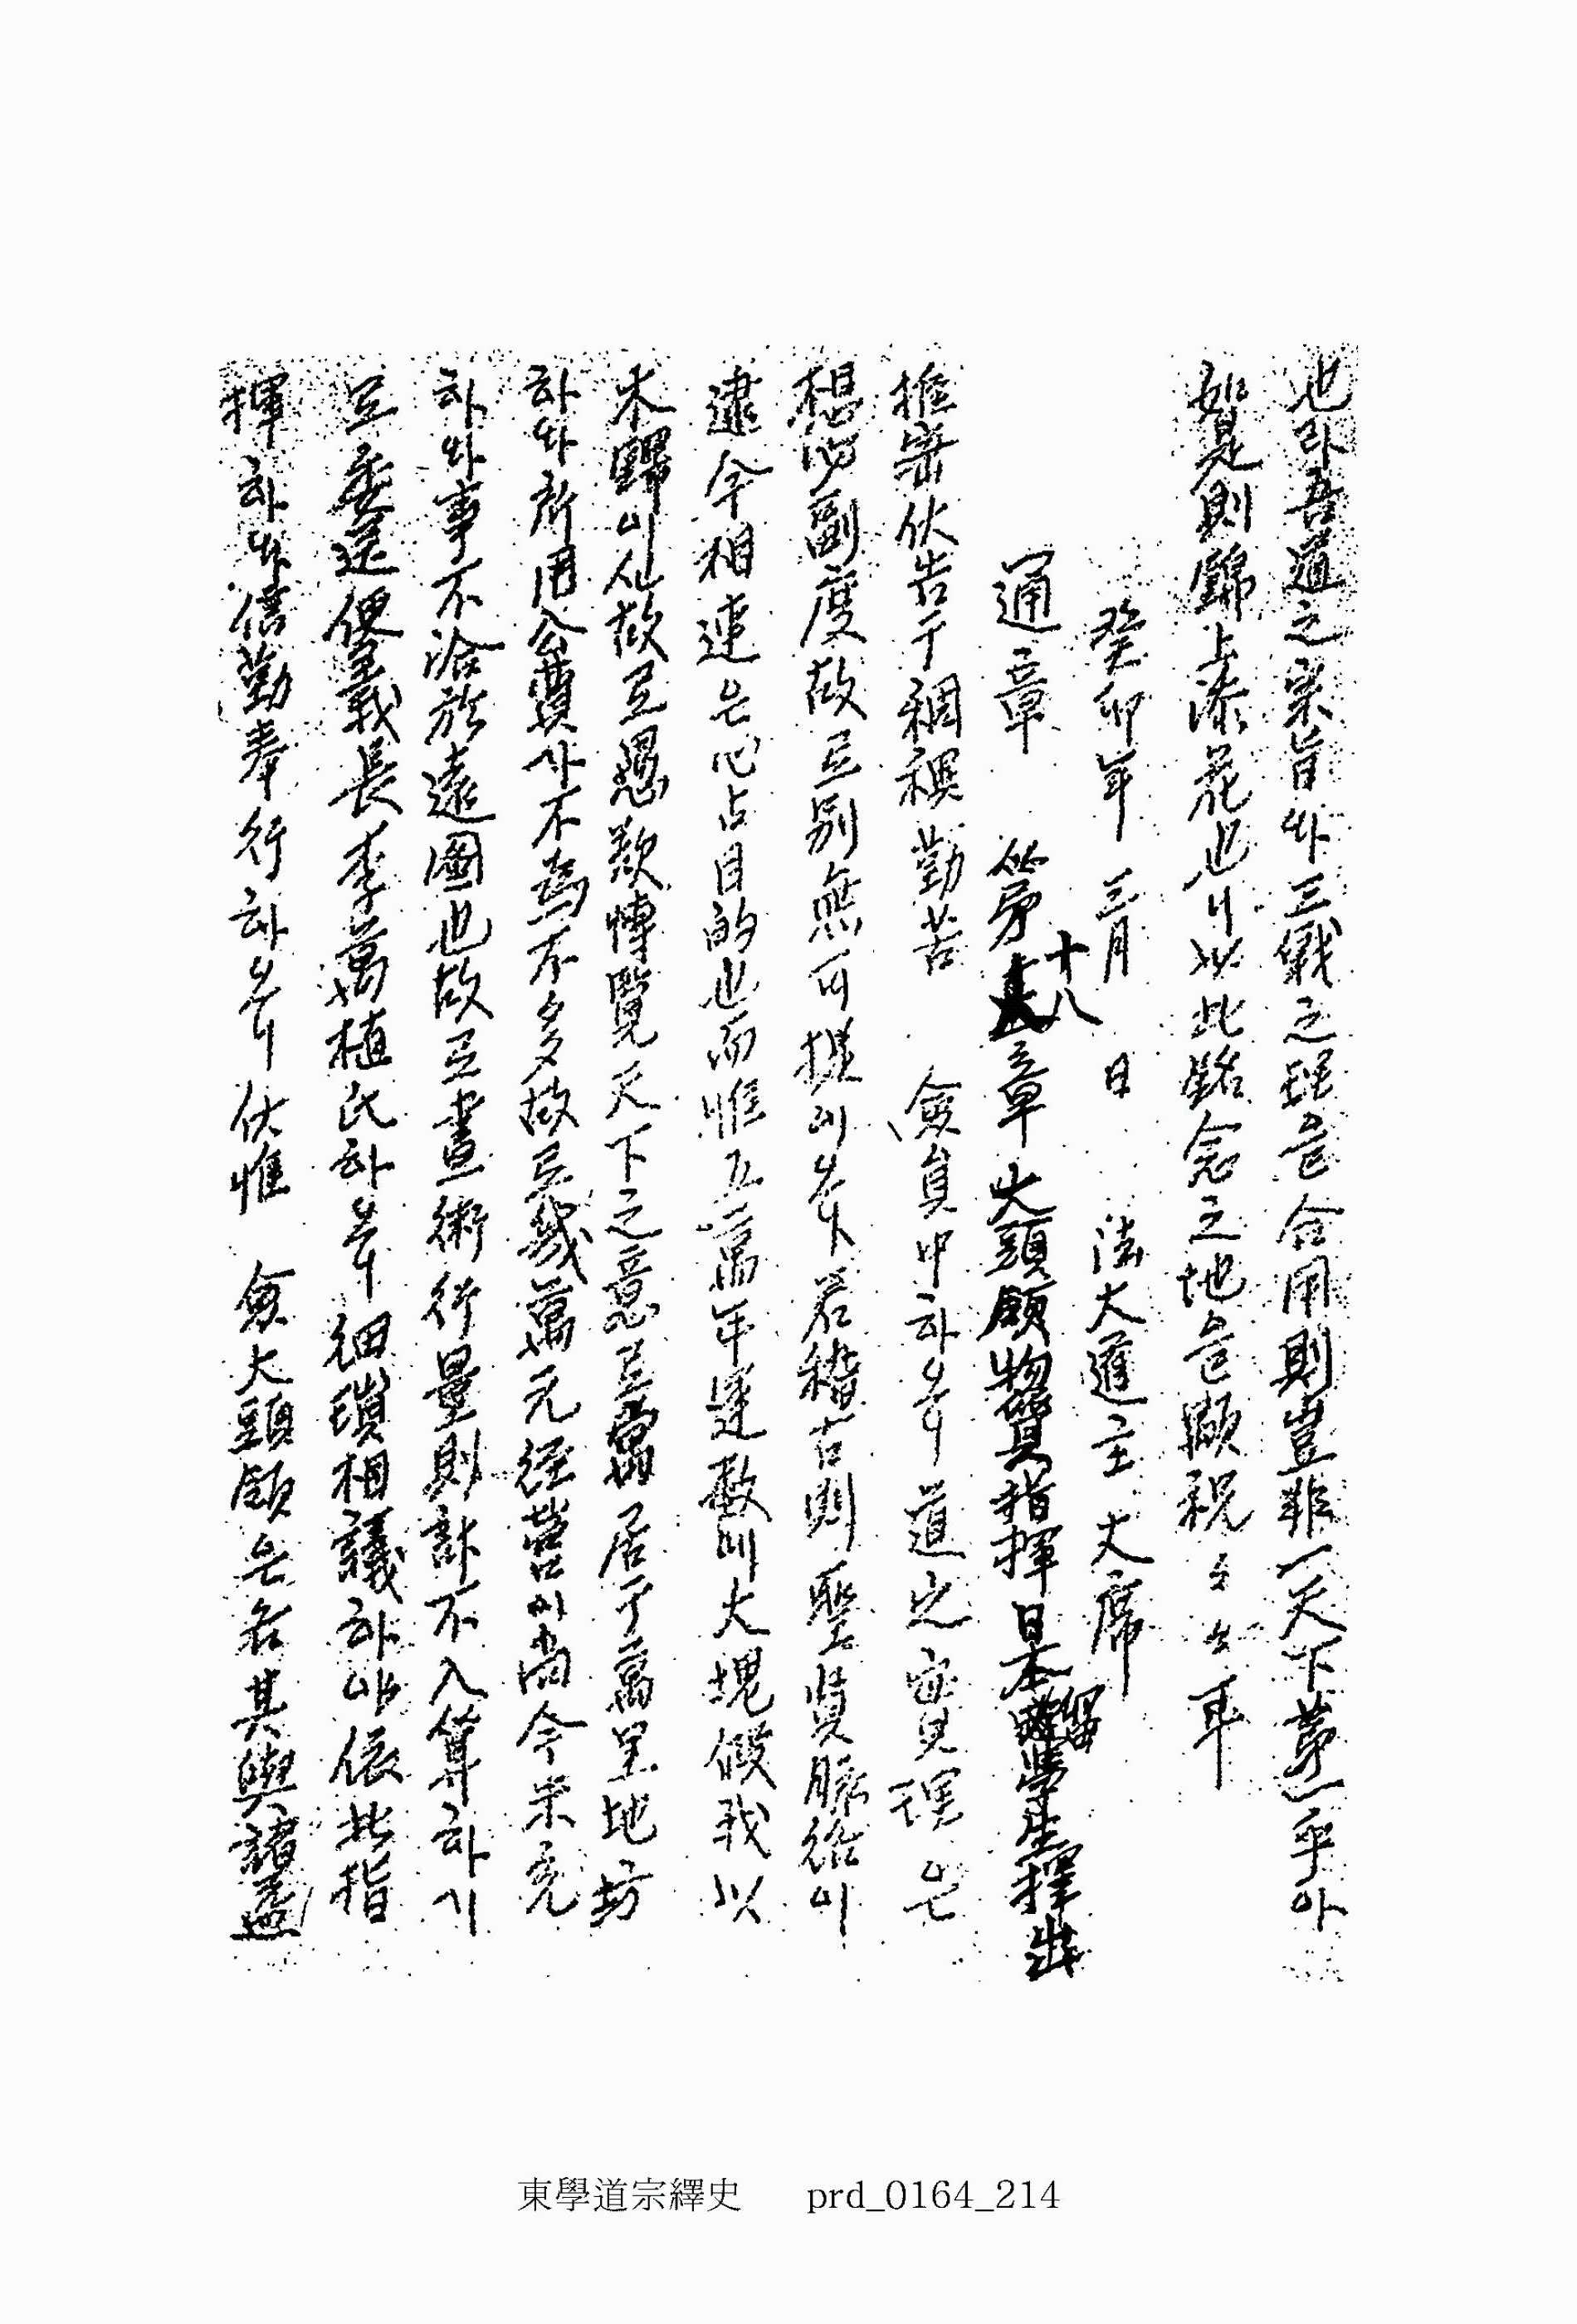 也라吾道之宗旨와三戰之理을合用則豈非一天下第一乎아
如是則錦上添花也니以此銘念之地을顒祝々々耳
癸卯年 三月 日 法大道主 大席
通章 第十八章 大頭領物質指揮日本留學生擇出
推密伏告于稠禩勤苦 僉員中하오니道之實理은
想必副度故로別無可提이오나若稽古則聖賢脉絡이
逮今相連은心占目的也而惟五萬年運數이大塊假我以
未歸이仙故로愚欺博覽天下之意로寓居于萬里地坊
하와所用公費가不爲不多故로幾萬元經營이尙今未充
하와事不洽於遠圖也故로畫術行量則計不入算하기
로委送便義長李萬植氏하오니細瑣相議하야依此指
揮하와倍勤奉行하오니伏惟 僉大頭領은若其與諸益
東學道宗繹史 prd_0164_214